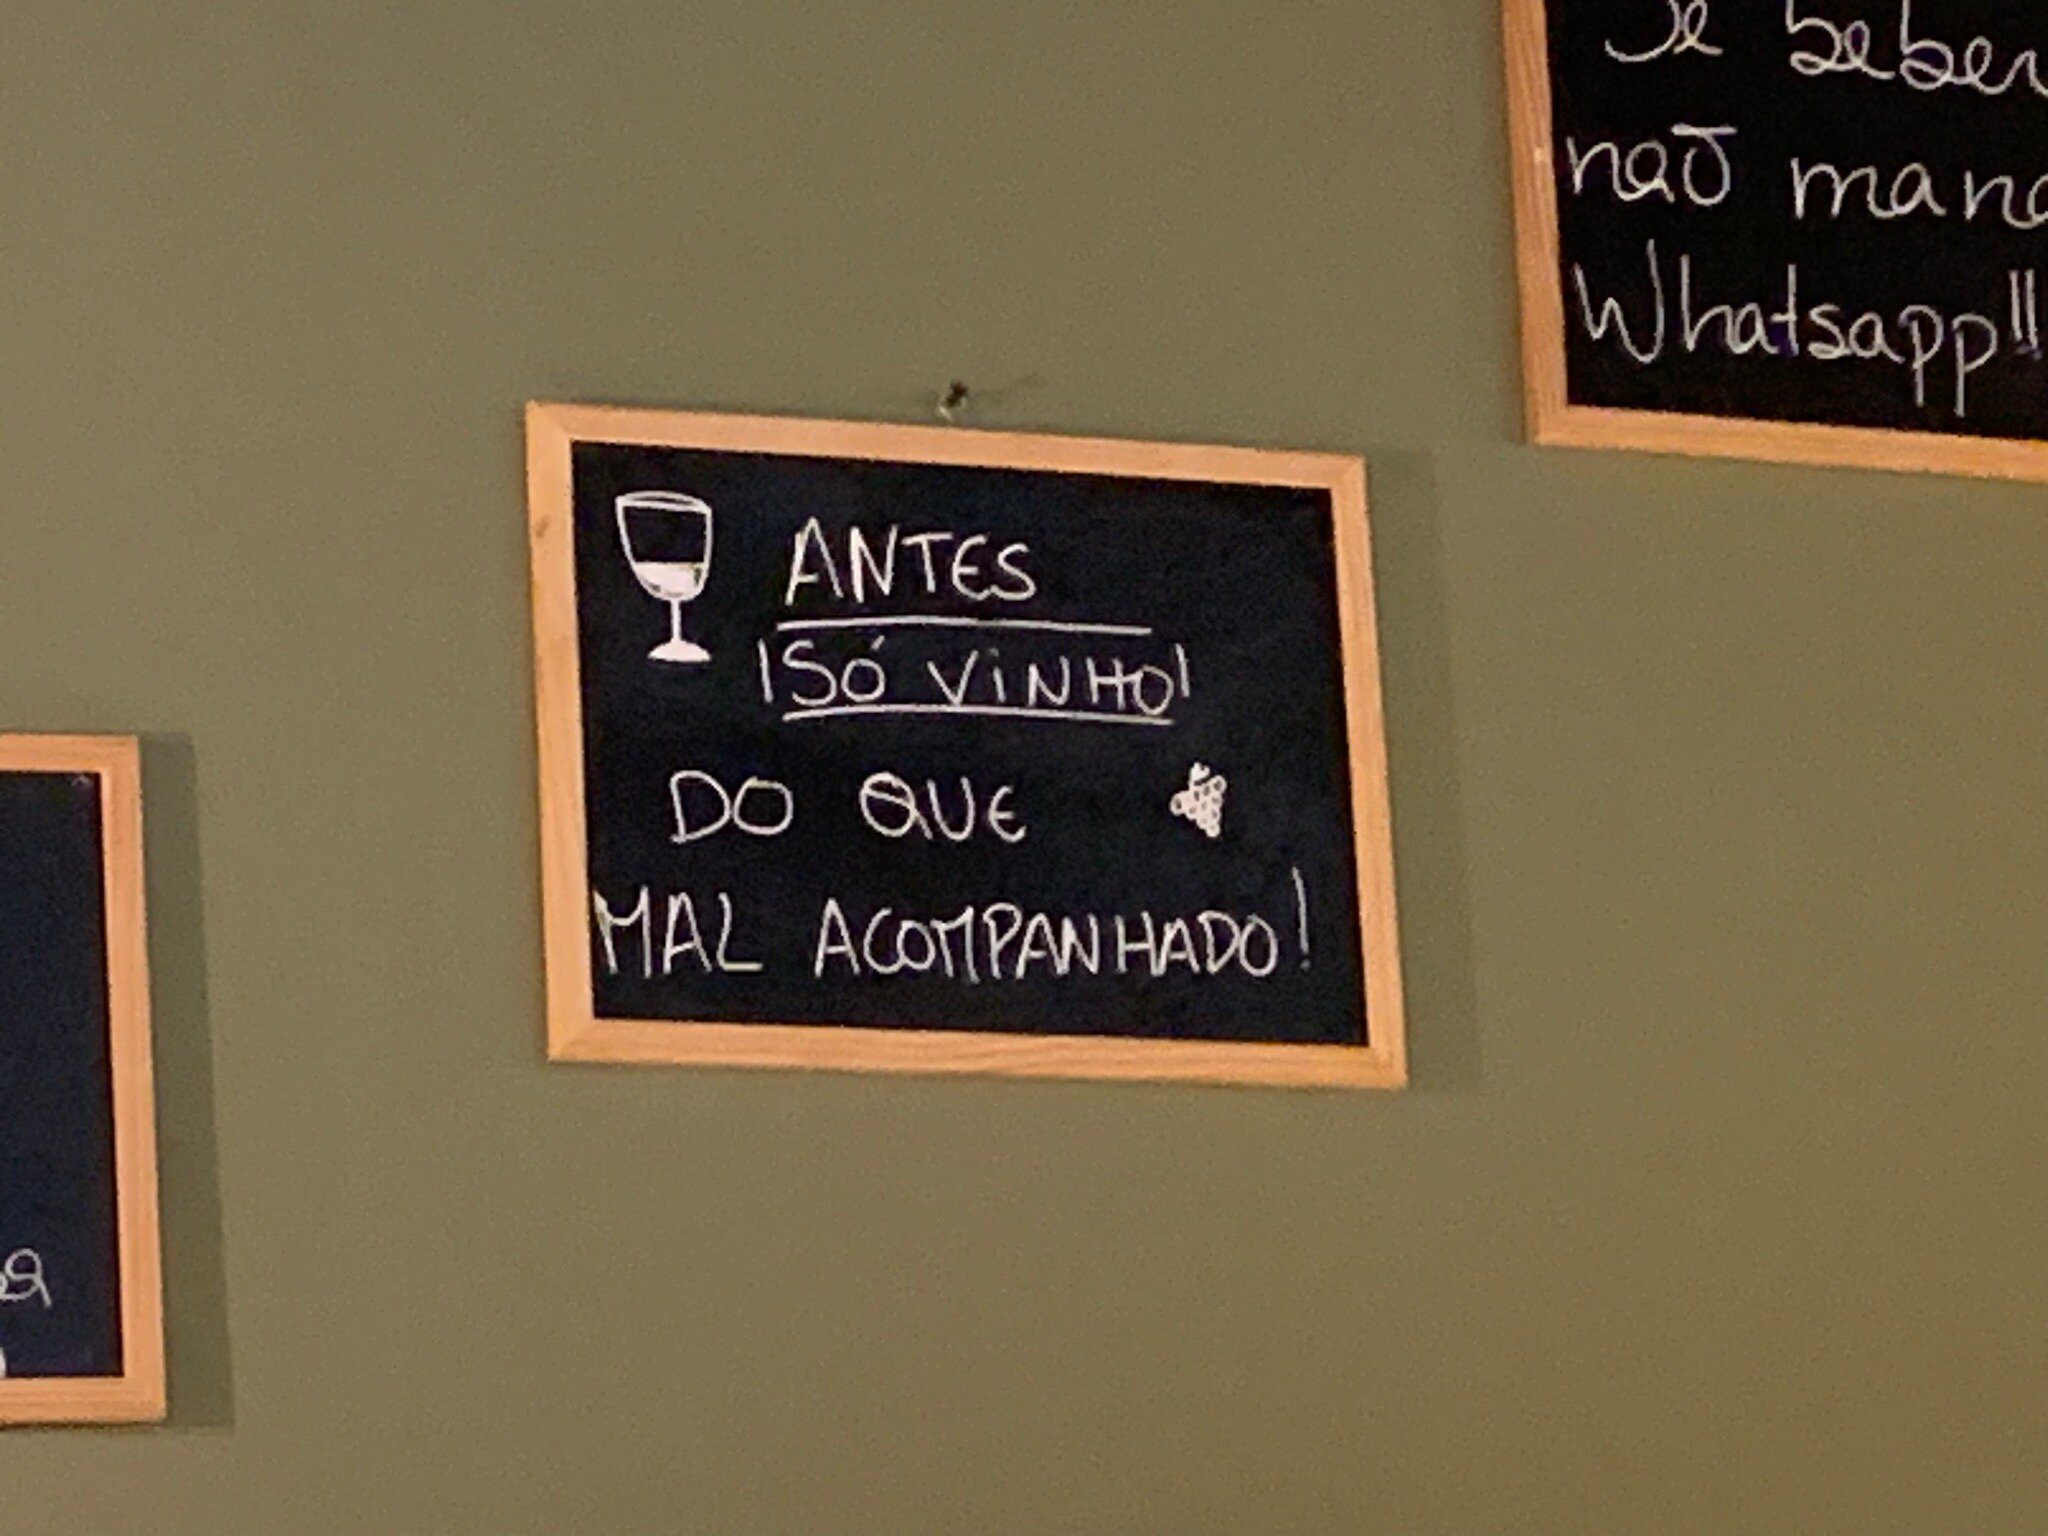 Se beber
não mand
Whatsapp!!
ANTES
SÓ VINHO
DO QUE
MAL ACOMPANHADO!